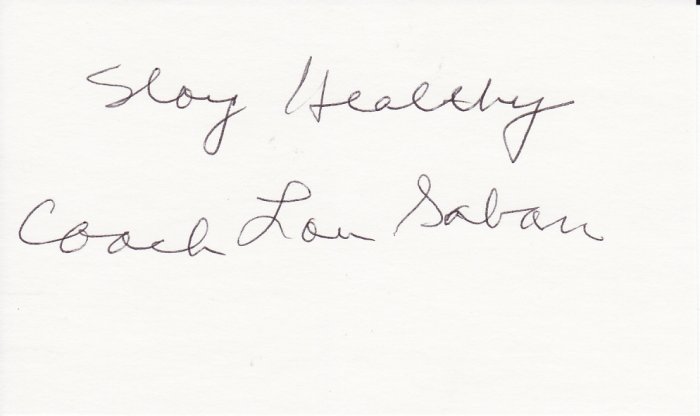 Stay Healthy
Coach Lou Saban